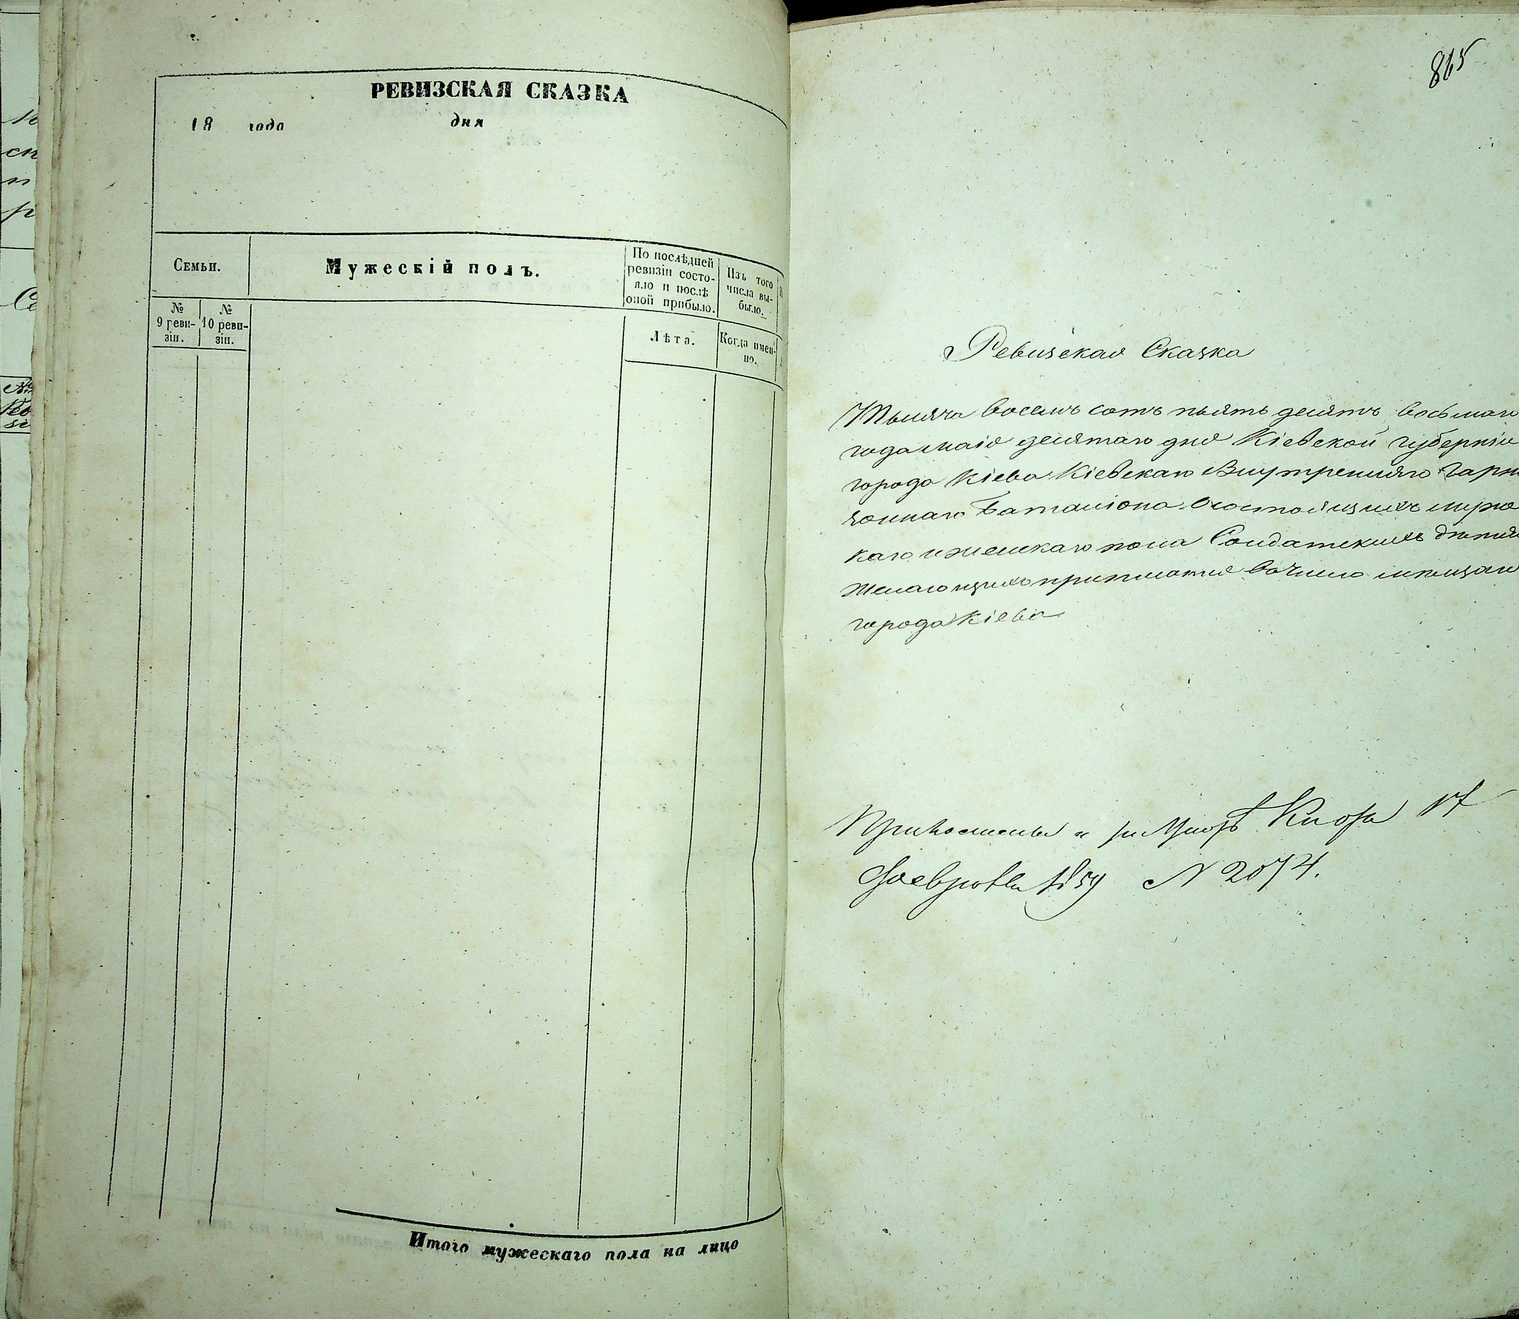 РЕВИЗСКАЯ СКАЗКА
18 года дня
Семьи.
Мужескій полъ.
По послѣдней
ревизіи состо-
яло и послѣ
оной прибыло.
Изъ того
числа вы-
было.
№
9 реви-
зіи.
№
10 реви-
зіи.
Лѣта.
Когда имен-
но.
Итого мужескаго пола на лицо
865
Ревизская Сказка
Тысяча восемь сотъ пять десятъ восьмаго
года маія десятаго дня Кіевской губерніи
города Кіева Кіевскаго Внутренняго Гарни
зоннаго Баталіона о состоящихъ мужс
каго и женскаго пола Солдатскихъ дѣтей
желающихъ приписатся въ число мѣщанъ
города Кіева
17
Февраля 1859 N 2074.